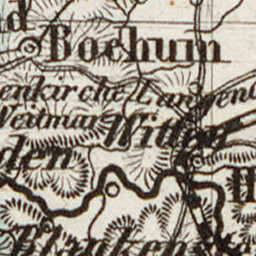 d
Bochum
enkirche Langen
Weitmar Witten
den
H
Blanken